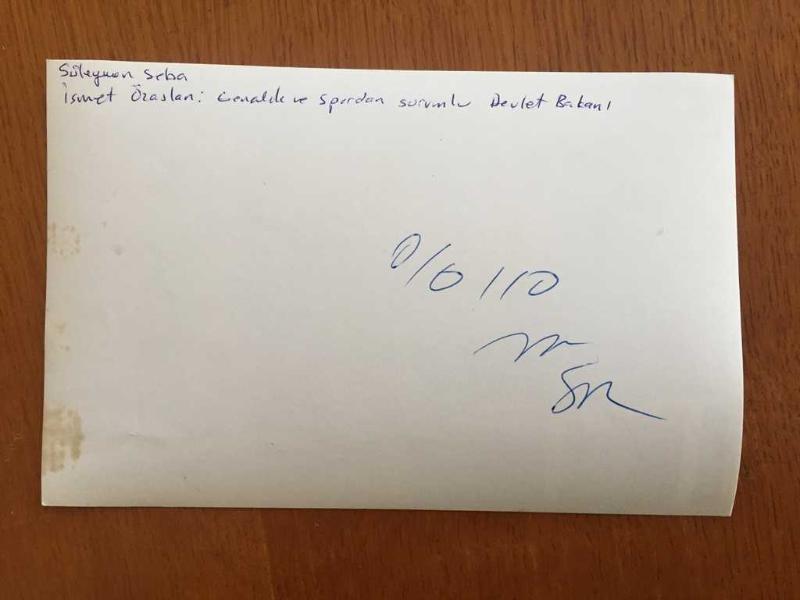 Süleyman Seba
İsmet Özaslan: Genclik ve Spordan sorumlu Devlet Bakanı
% 110